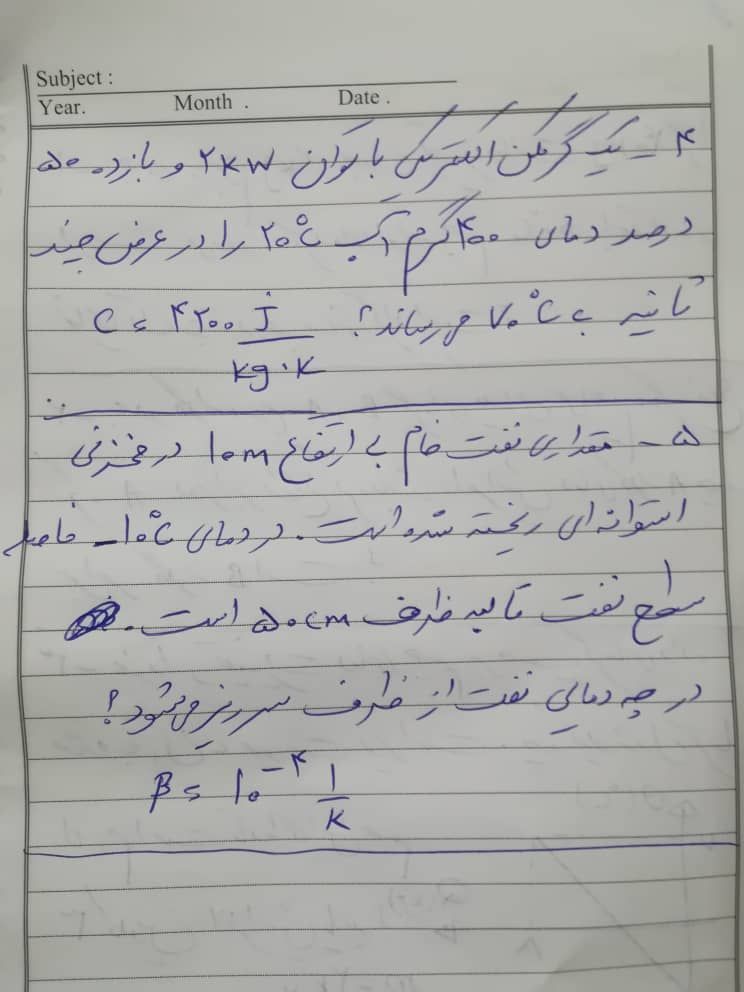 Subject :
Year. Month . Date .
۴ - یک گرمکن الکتریکی با توان ۲kW و بازده ۵۰
درصد دمای ۴۰۰ گرم آب ۲۰°C را در عرض چند
ثانیه به ۷۰°C می‌رساند؟ C = ۴۲۰۰ J/kg.K
۵ - مقداری نفت خام به ارتفاع ۱۰m در مخزنی
استوانه‌ای ریخته شده است. در دمای ۱۰°C- فاصله
سطح نفت تا لبه ظرف ۵۰cm است.
در چه دمایی نفت از ظرف سرریز می‌شود؟
β = ۱۰⁻۴ 1/K